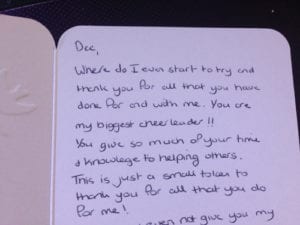 Dee,
Where do I even start to try and
thank you for all that you have
done for and with me. You are
my biggest cheerleader!!
You give so much of your time
& knowlege to helping others.
This is just a small token to
thank you for all that you do
for me!
even not give you my